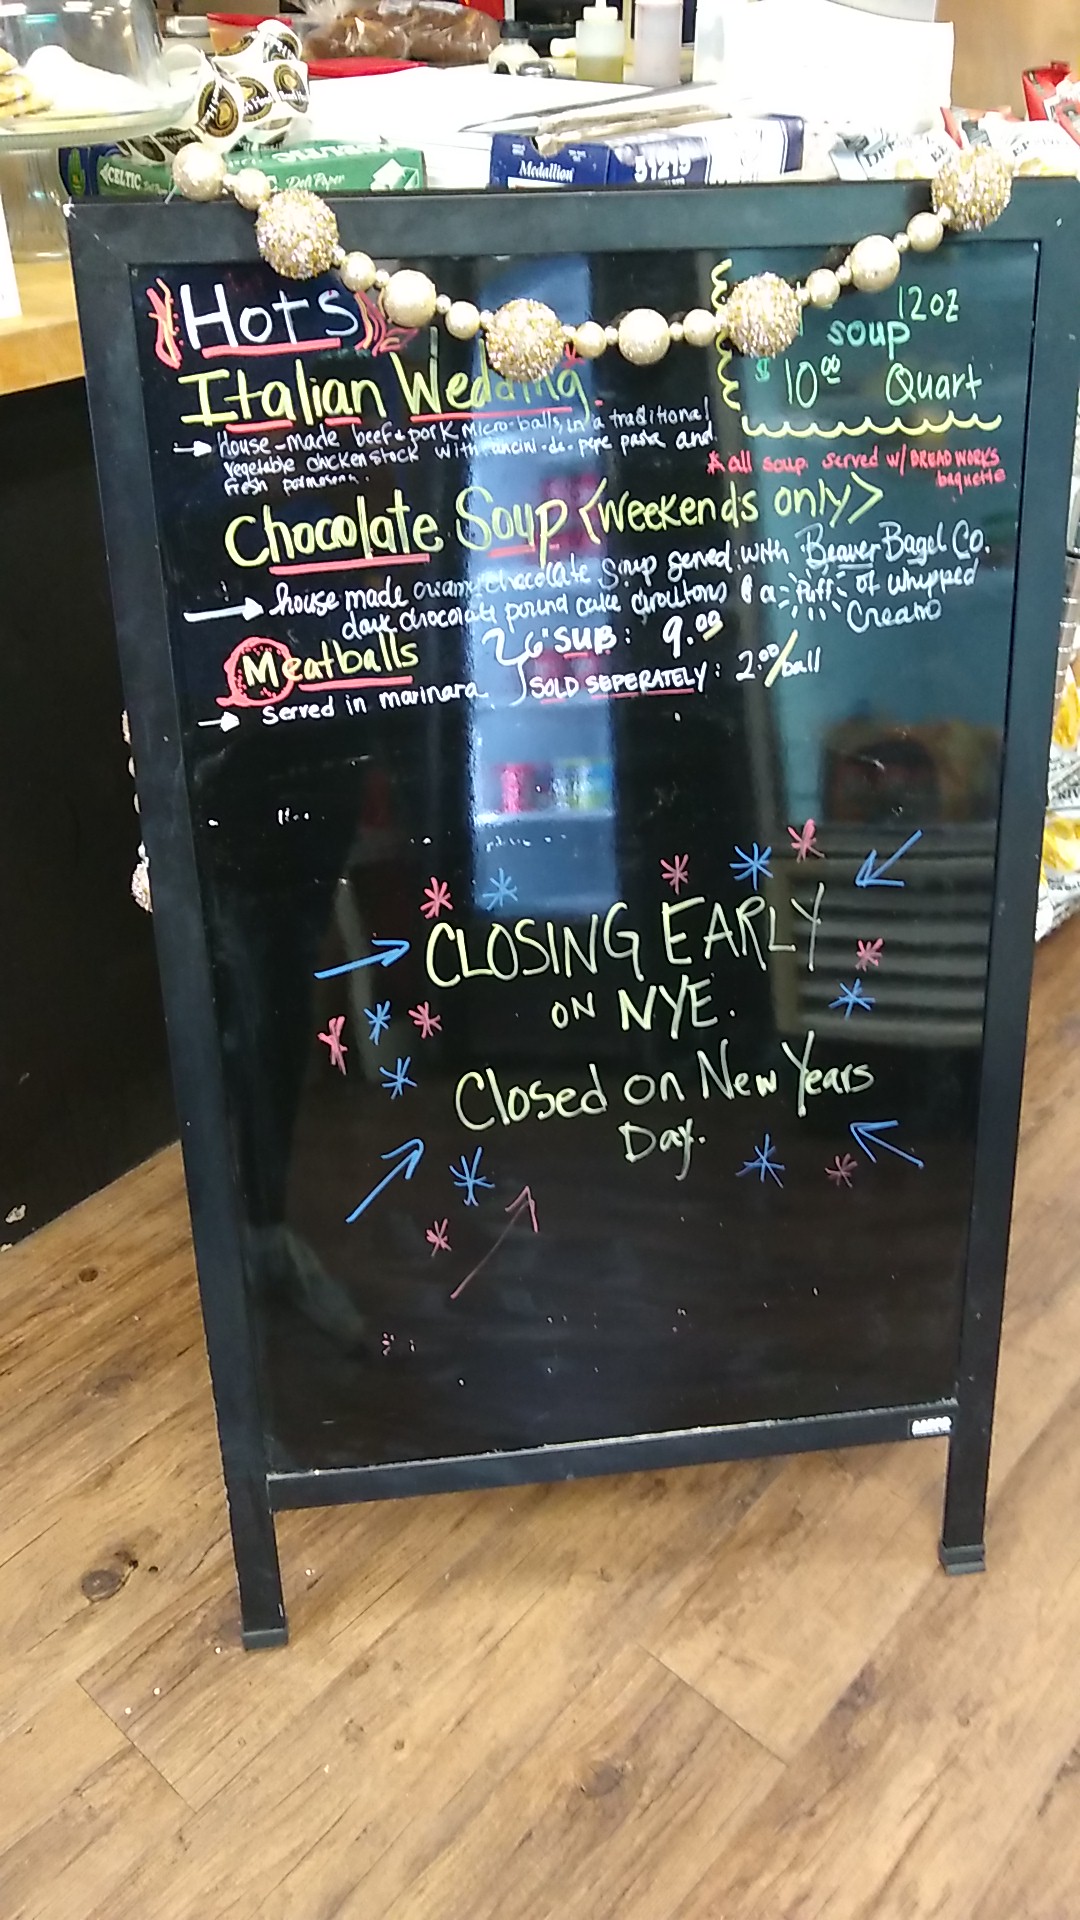 CELTIC
Deli Paper
Medallion
51215
Hots
12oz
soup
$10.00 Quart
Italian Wedding
→ House-made beef & pork micro-balls, in a traditional
vegetable chicken stock with pepe pasta and
Fresh
* all soup served w/ BREADWORKS
baguette
Chocolate Soup <Weekends only>
→ house made creamy chocolate soup served with Beaver Bagel Co.
dark chocolate pound cake croutons & a Puff of whipped
Cream
Meatballs
6" SUB: 9.00
SOLD SEPERATELY: 2.00/ball
→ Served in marinara
CLOSING EARLY
ON NYE.
Closed on New Years
Day.